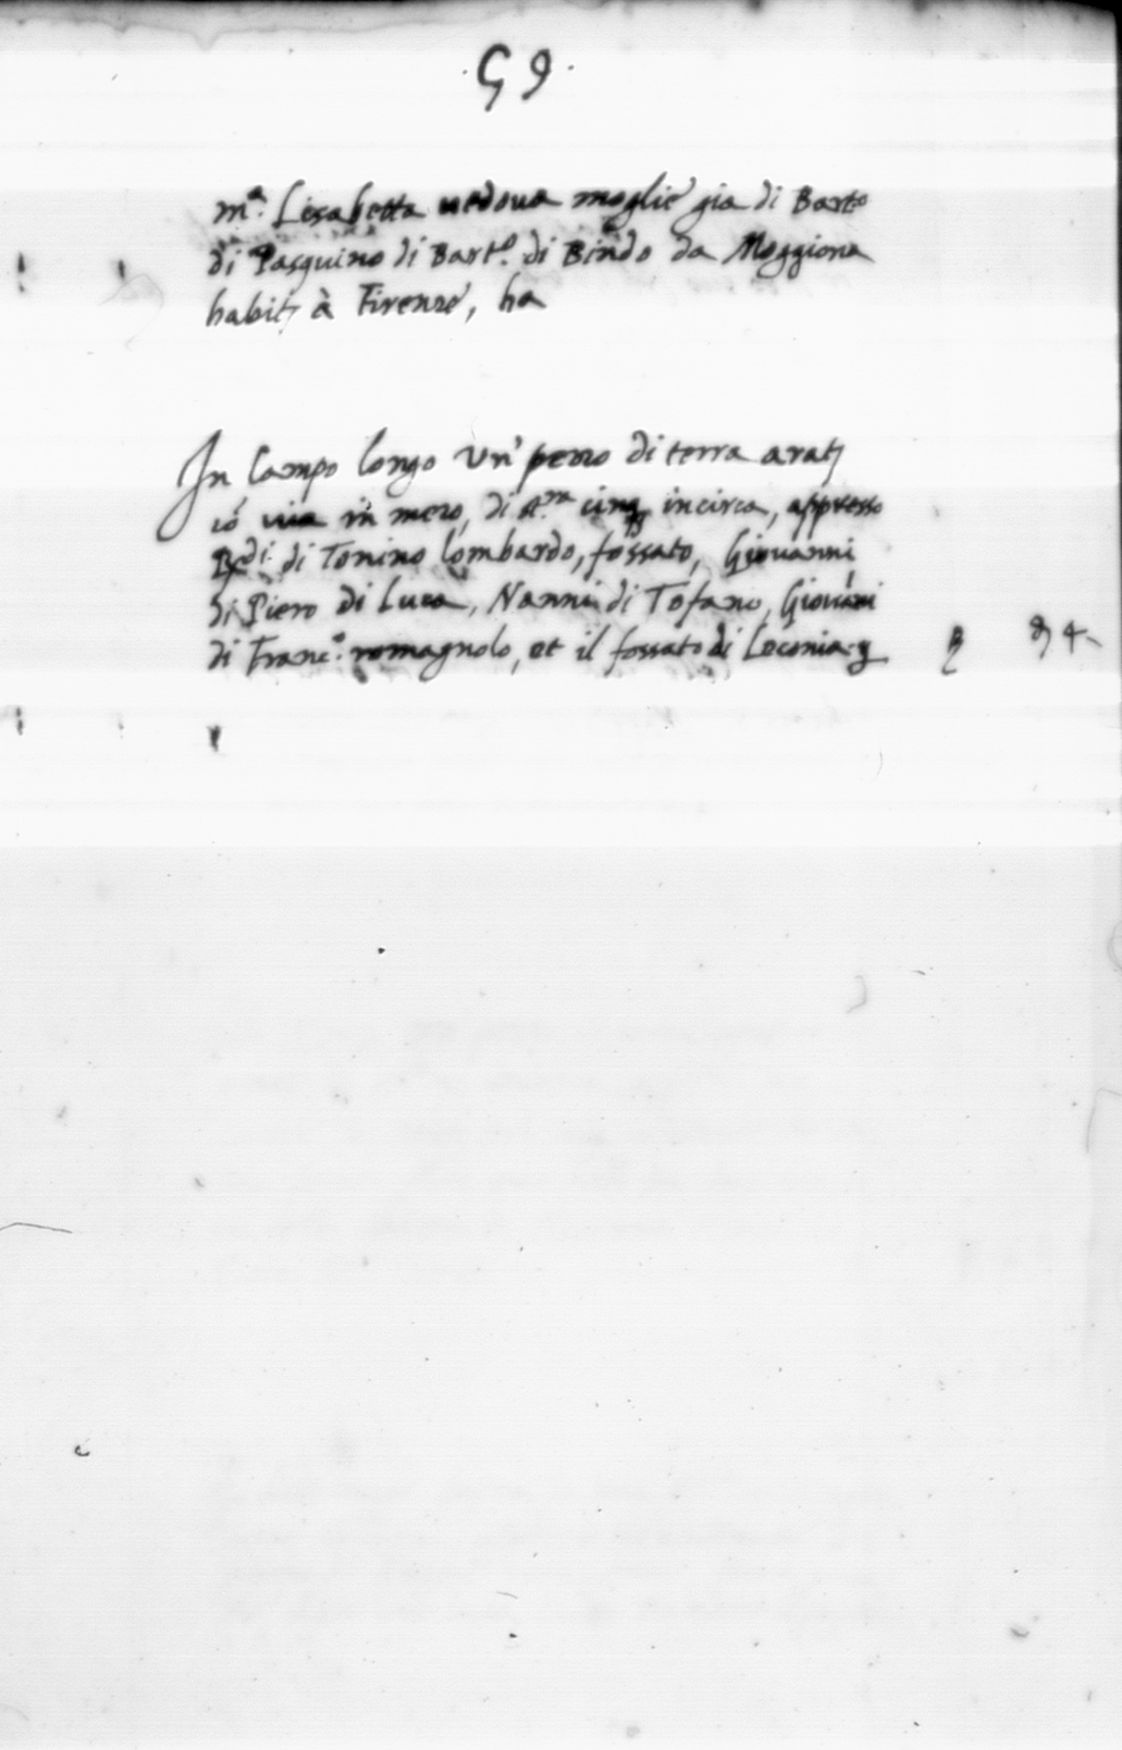 .59.
m.ª Lisabetta uedoua moglie gia di Bart.º
di Pasquino di Bart.º di Bindo da Moggiona
habit à Firenze, ha
In Campo longo un' pezzo di terra arat
cõ uia in mezo, di st.ra cinq incirca, appresso
R.di di Tonino lombardo, fossato, Giouanni
di Piero di Luca, Nanni di Tofano, Giouãni
di Franc.º romagnolo, et il fossato di Leconia